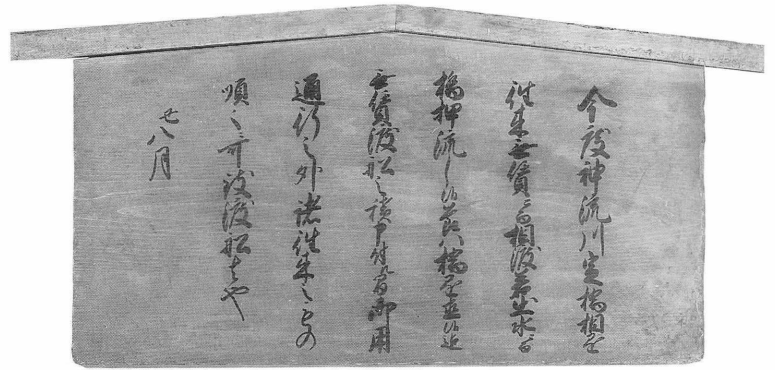 今度神流川定橋相懸
往来無賃ニ而相渡若出水ニ而
橋押流し候節ハ橋懸渡候迄
無賃渡船之積申付候間御用
通行之外諸往来之もの
順々可致渡船もの也
八月